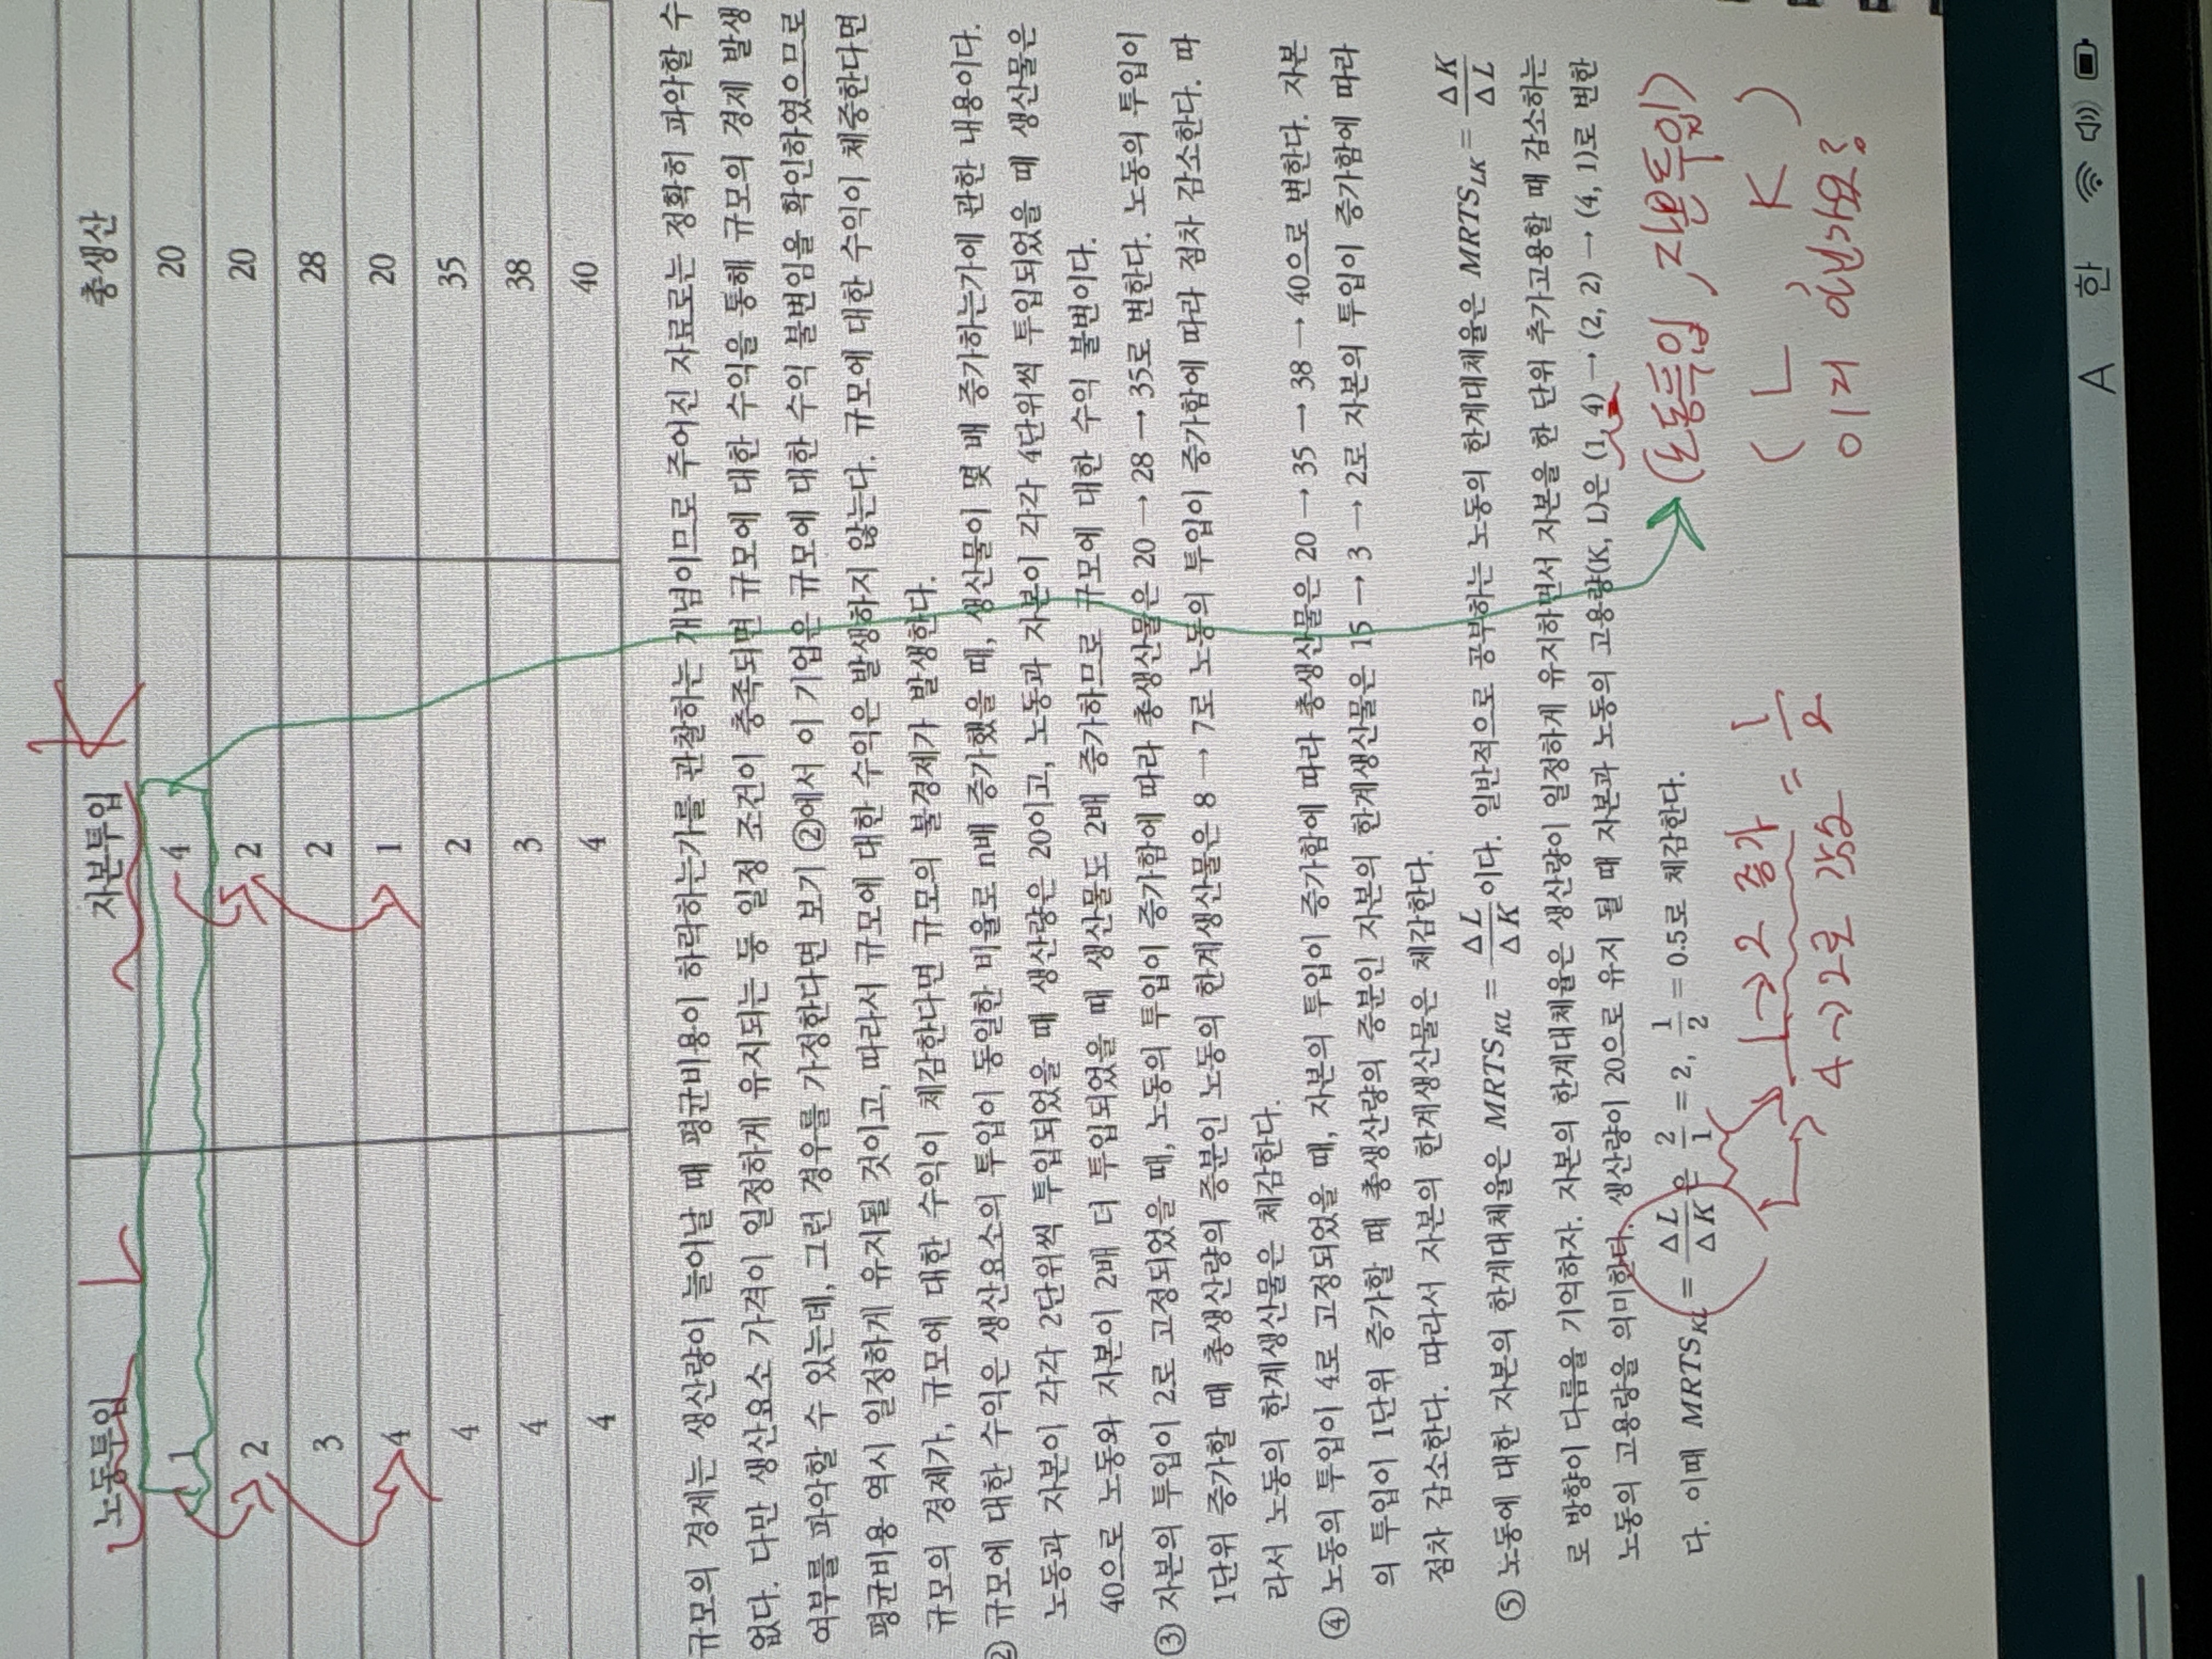 노동투입 L 자본투입 K 총생산
1 4 20
2 2 20
3 2 28
4 1 20
4 2 35
4 3 38
4 4 40
규모의 경제는 생산량이 늘어날 때 평균비용이 하락하는가를 관찰하는 개념이므로 주어진 자료로는 정확히 파악할 수
없다. 다만 생산요소 가격이 일정하게 유지되는 등 일정 조건이 충족되면 규모에 대한 수익을 통해 규모의 경제 발생
여부를 파악할 수 있는데, 그런 경우를 가정한다면 보기 ②에서 이 기업은 규모에 대한 수익 불변임을 확인하였으므로
평균비용 역시 일정하게 유지될 것이고, 따라서 규모에 대한 수익은 발생하지 않는다. 규모에 대한 수익이 체증한다면
규모의 경제가, 규모에 대한 수익이 체감한다면 규모의 불경제가 발생한다.
② 규모에 대한 수익은 생산요소의 투입이 동일한 비율로 n배 증가했을 때, 생산물이 몇 배 증가하는가에 관한 내용이다.
노동과 자본이 각각 2단위씩 투입되었을 때 생산량은 20이고, 노동과 자본이 각각 4단위씩 투입되었을 때 생산물은
40으로 노동와 자본이 2배 더 투입되었을 때 생산물도 2배 증가하므로 규모에 대한 수익 불변이다.
③ 자본의 투입이 2로 고정되었을 때, 노동의 투입이 증가함에 따라 총생산물은 20 → 28 → 35로 변한다. 노동의 투입이
1단위 증가할 때 총생산량의 증분인 노동의 한계생산물은 8 → 7로 노동의 투입이 증가함에 따라 점차 감소한다. 따
라서 노동의 한계생산물은 체감한다.
④ 노동의 투입이 4로 고정되었을 때, 자본의 투입이 증가함에 따라 총생산물은 20 → 35 → 38 → 40으로 변한다. 자본
의 투입이 1단위 증가할 때 총생산량의 증분인 자본의 한계생산물은 15 → 3 → 2로 자본의 투입이 증가함에 따라
점차 감소한다. 따라서 자본의 한계생산물은 체감한다.
⑤ 노동에 대한 자본의 한계대체율은 MRTS_KL = △L/△K이다. 일반적으로 공부하는 노동의 한계대체율은 MRTS_LK = △K/△L
로 방향이 다름을 기억하자. 자본의 한계대체율은 생산량이 일정하게 유지하면서 자본을 한 단위 추가고용할 때 감소하는
노동의 고용량을 의미한다. 생산량이 20으로 유지 될 때 자본과 노동의 고용량(K, L)은 (1, 4) → (2, 2) → (4, 1)로 변한
다. 이때 MRTS_KL = △L/△K은 2/1 = 2, 1/2 = 0.5로 체감한다.
(노동투입, 자본투입)
( L , K )
이거 아닌가요?
1→2 증가
4→2로 감소 = 1/2
A 한